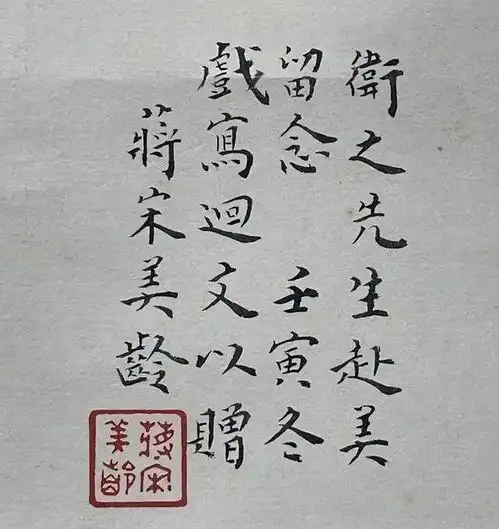 衛之先生赴美
留念 壬寅冬
戲寫迴文以贈
蔣宋美齡
蔣宋
美齡